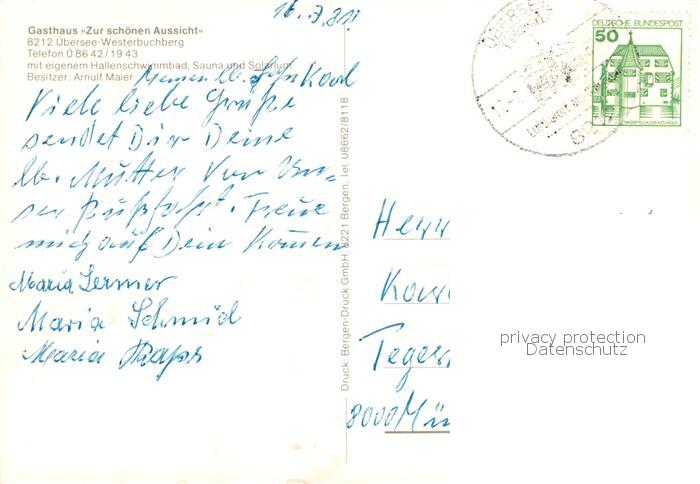 16.7.81
Gasthaus »Zur schönen Aussicht«
8212 Übersee-Westerbuchberg
Telefon 0 86 42 / 19 43
mit eigenem Hallenschwimmbad, Sauna und Solarium
Besitzer: Arnulf Maier
Meinen lb. Sohn Karl
Viele liebe Grüße
sendet Dir Deine
lb. Mutter von
Freue
mich auf Dein Kommen
Maria Lermer
Maria Schmid
Maria
Druck: Bergen-Druck GmbH, 8221 Bergen, Tel. 08662/8118
ÜBERSEE
DEUTSCHE BUNDESPOST
50
WASSERSCHLOSS INZLINGEN
Herr
Tegern
8000 Mün
privacy protection
Datenschutz